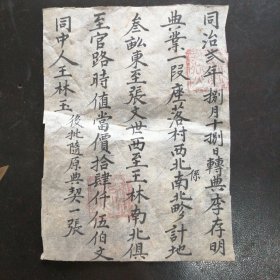 同治弍年捌月十捌日轉典李存明
典業一段座落村西北南北畛計地
係
叁畝東至張文世西至王林南北俱
至官路時值當價拾肆仟伍伯文
同中人王林玉 後批隨原典契一張